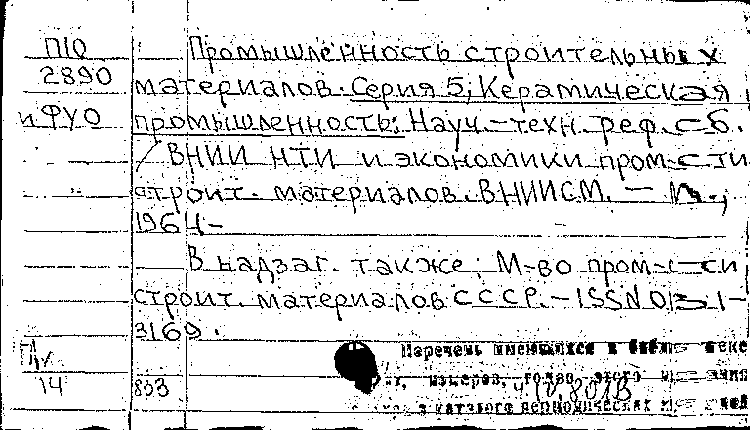 П10
2890
и ФУО
Промышленность строительных
материалов. Серия 5, Керамическая
промышленность: Науч.-техн. реф. сб.
/ ВНИИ НТИ и экономики пром-сти
строит. материалов. ВНИИСМ. — М.,
1964-
В надзаг. также: М-во пром-сти
строит. материалов СССР. — ISSN
3169.
Перечень имеющихся в
номеров, этого
в каталоге периодических
14
803